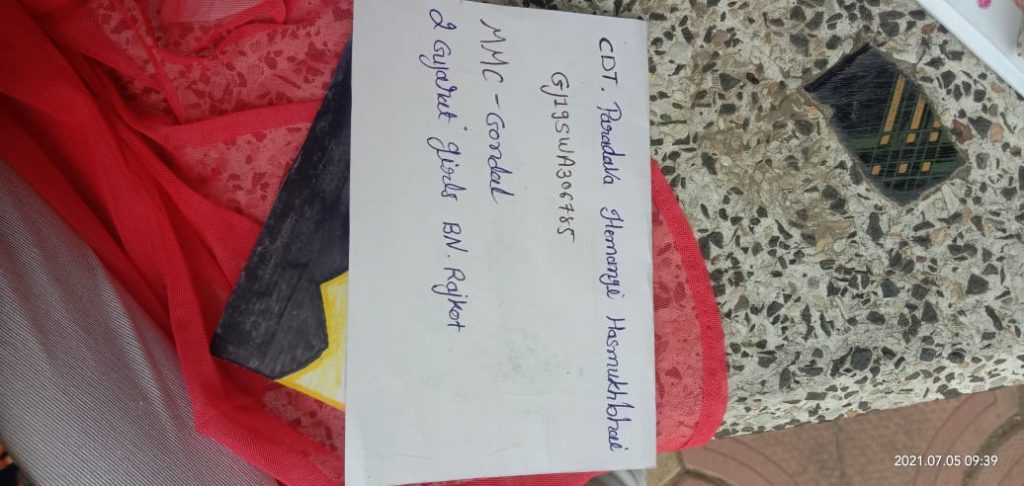 CDT. Paradava Hemangi Hasmukhbhai
GJ19SWA306785
MMC - Gondal
2 Gujarat girls BN. Rajkot
2021.07.05 09:39